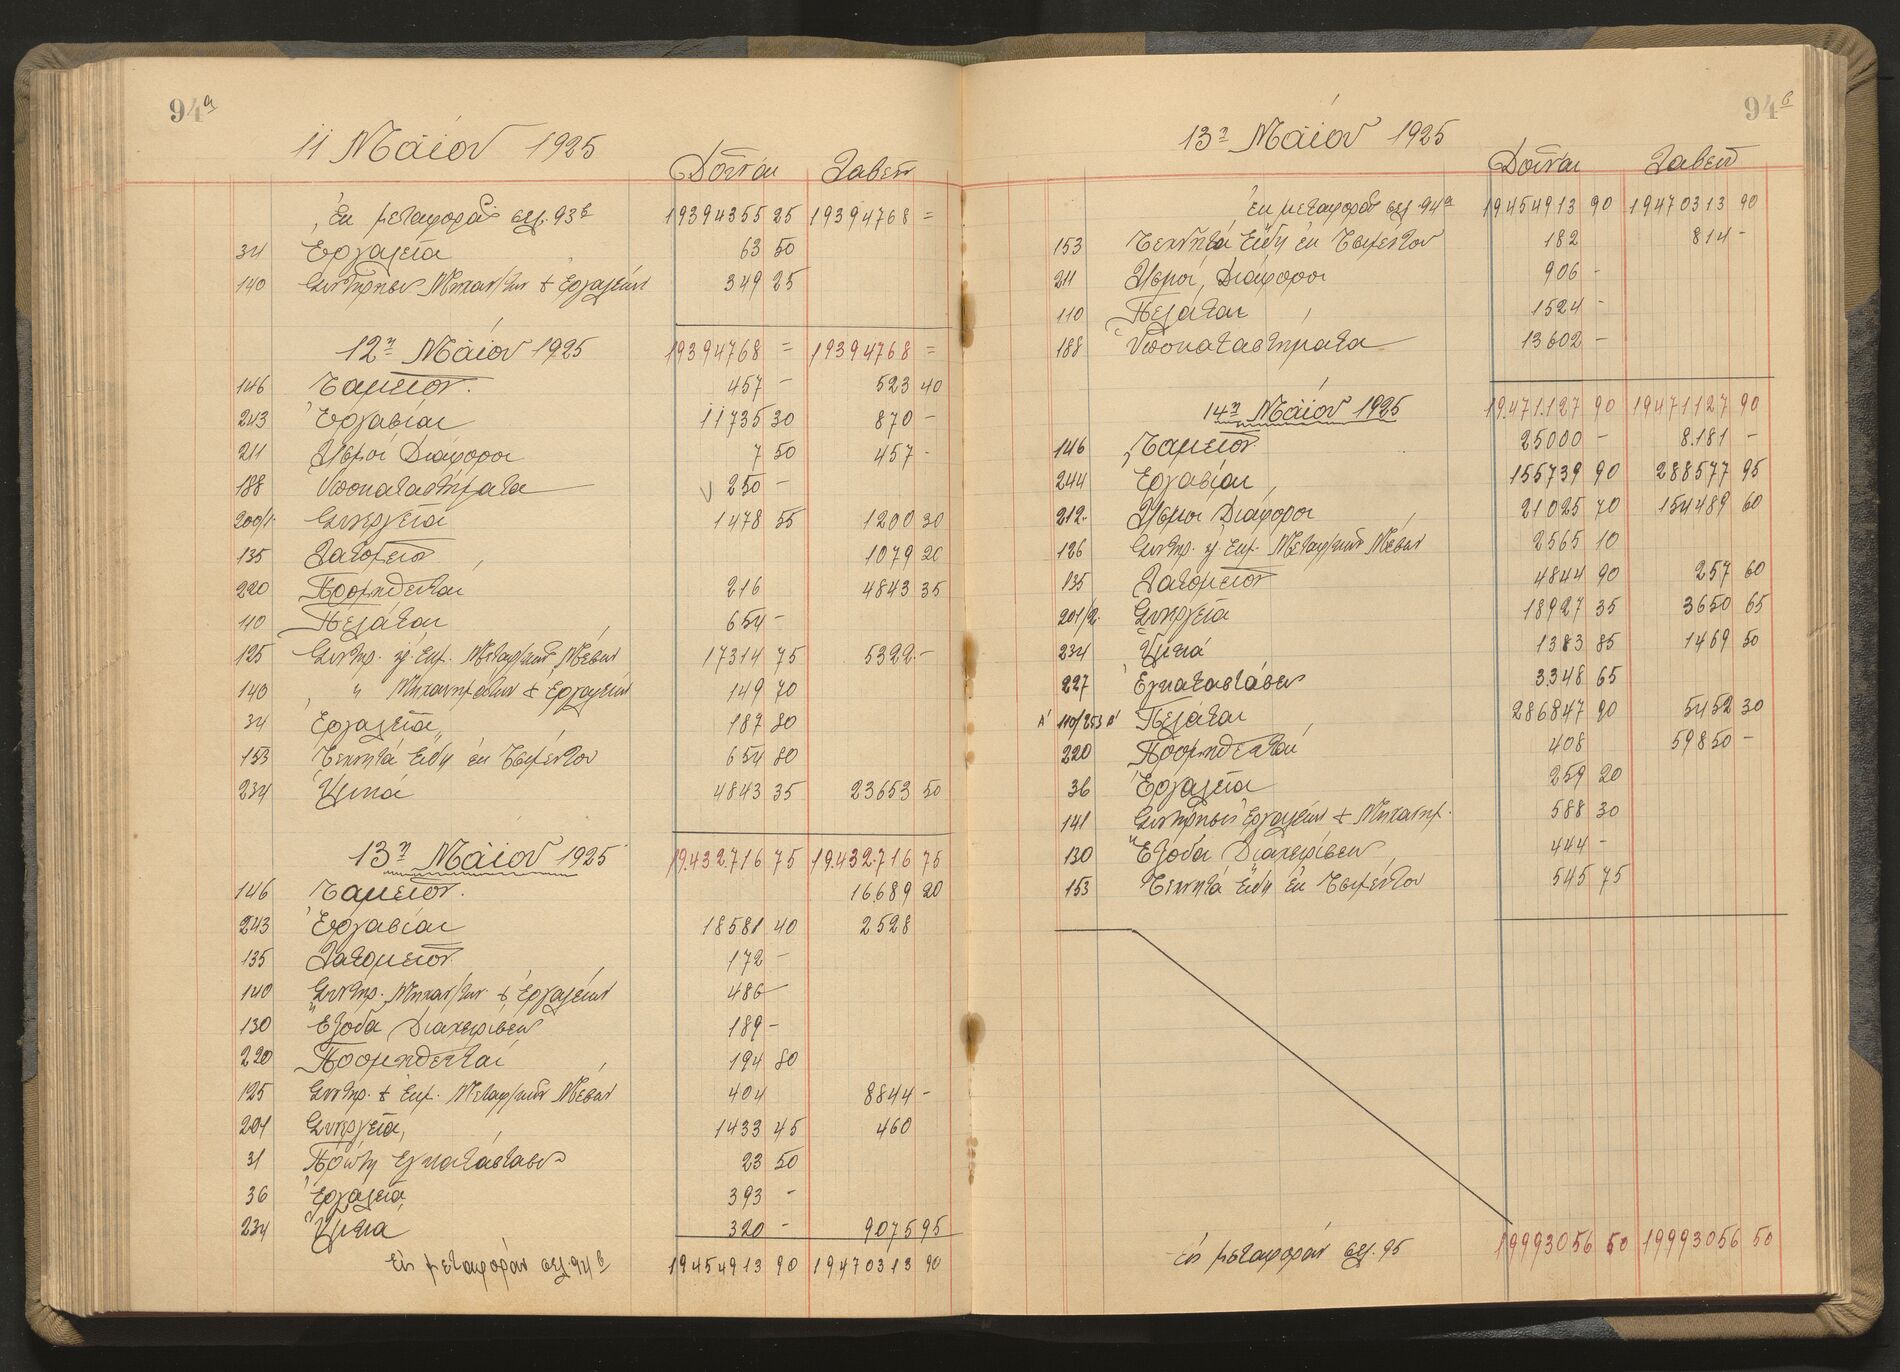 94α
11 Μαΐου 1925
Δοῦναι Λαβεῖν
Ἐκ μεταφορᾶς σελ. 93β 19394355 25 19394768 =
34 Ἐργαλεῖα 63 50
140 Συντήρησις Μηχαν/των & Ἐργαλείων 349 25
12η Μαΐου 1925 19394768 = 19394768 =
146 Ταμεῖον. 457 - 523 40
243 Ἐργασίαι 11735 30 870 -
211 Λ/σμοί Διάφοροι 7 50 457 -
188 Ὑποκαταστήματα 250 -
200/1. Συνεργεῖα 1478 55 1200 30
135 Λατομεῖον 1079 20
220 Προμηθευταί 216 4843 35
110 Πελάται 654 -
125 Συντηρ. & Ἐκμ. Μεταφ/κῶν Μέσων 17314 75 5322.-
140 " Μηχανημάτων & Ἐργαλείων 149 70
34 Ἐργαλεῖα 187 80
153 Τεχνητά Εἴδη ἐκ Τσιμέντου 654 80
234 Ὑλικά 4843 35 23653 50
13η Μαΐου 1925 19.432.716 75 19.432.716 75
146 Ταμεῖον. 16.689 20
243 Ἐργασίαι 18581 40 2528
135 Λατομεῖον 172 -
140 Συντηρ. Μηχαν/των & Ἐργαλείων 486 -
130 Ἔξοδα Διαχειρίσεως 189 -
220 Προμηθευταί 194 80
125 Συντηρ. & Ἐκμ. Μεταφ/κῶν Μέσων 404 8844 -
201 Συνεργεῖα 1433 45 460
31 Πρώτη Ἐγκατάστασις 23 50
36 Ἐργαλεῖα 393 -
234 Ὑλικά 320 - 9075 95
Εἰς μεταφοράν σελ. 94β 19454913 90 19470313 90
94β
13η Μαΐου 1925
Δοῦναι Λαβεῖν
Ἐκ μεταφορᾶς σελ. 94α 19454913 90 19470313 90
153 Τεχνητά Εἴδη ἐκ Τσιμέντου 182 814 -
211 Λ/σμοί Διάφοροι 906 -
110 Πελάται 1524 -
188 Ὑποκαταστήματα 13602 -
14η Μαΐου 1925 19.471.127 90 19471127 90
146 Ταμεῖον 25000 - 8.181 -
244 Ἐργασίαι 155739 90 288577 95
212. Λ/σμοι Διάφοροι 21025 70 154489 60
126 Συντηρ. & Ἐκμ. Μεταφ/κῶν Μέσων 2565 10
135 Λατομεῖον 4844 90 257 60
201/2. Συνεργεῖα 18927 35 3650 65
234 Ὑλικά 1383 85 1469 50
227 Ἐγκαταστάσεις 3348 65
Α' 110/253 Β' Πελάται 286847 90 5452 30
220 Προμηθευταί 408 59850 -
36 Ἐργαλεῖα 259 20
141 Συντήρησις Ἐργαλείων & Μηχανημ. 588 30
130 Ἔξοδα Διαχειρίσεως 444 -
153 Τεχνητά Εἴδη ἐκ Τσιμέντου 545 75
Εἰς μεταφοράν σελ. 95 19993056 50 19993056 50